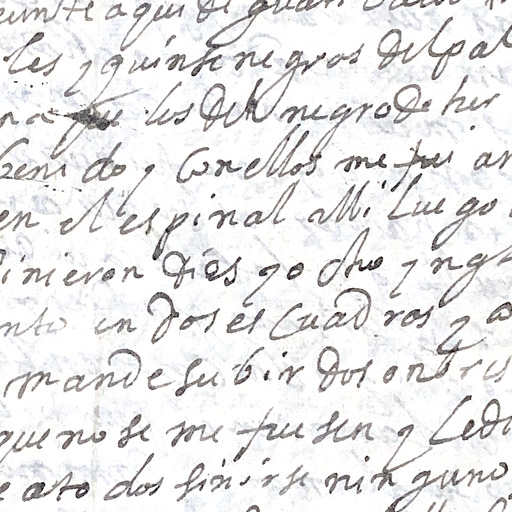 aqui de
les y quinse negros del pal
les del negro de her
beni do y con ellos me fui a
en el espinal alli luego
inieron dies y o cho yngl
nto en dos es cuadros y a
mande subir dos onbres
que no se me fuesen y le di
e ato dos sin irse ninguno